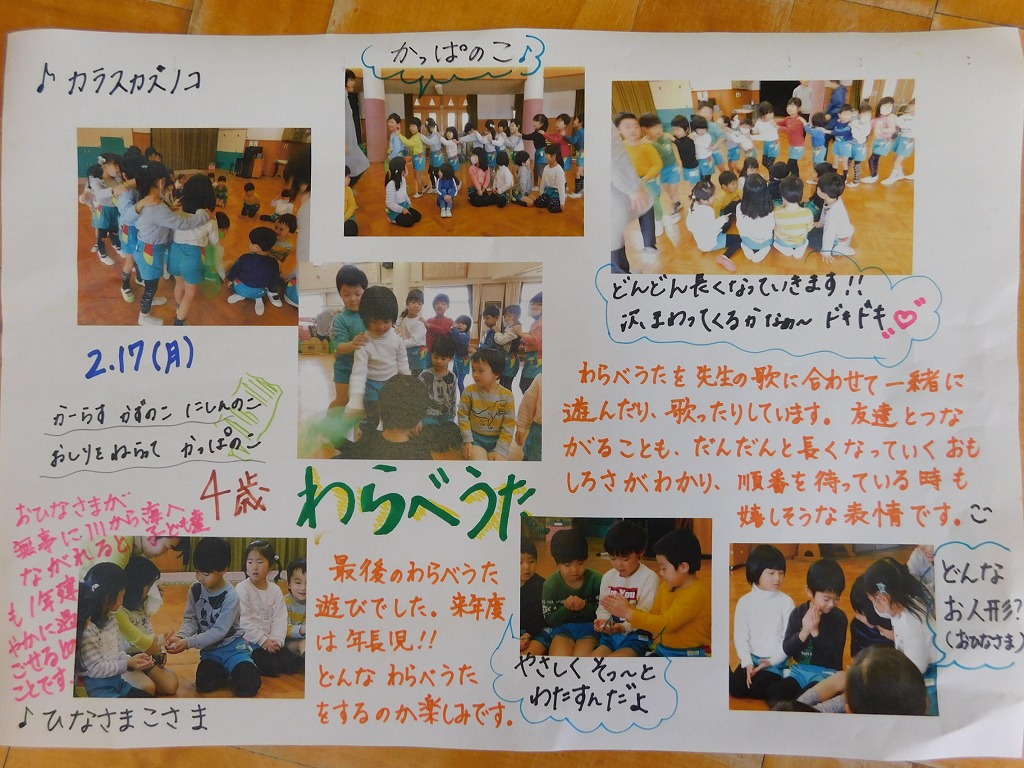 ♪カラスカズノコ
かっぱのこ♪
どんどん長くなっていきます!!
次、まわってくるかなぁ〜 ドキドキ♡
2.17(月)
かーらす かずのこ にしんのこ
おしりをねらって かっぱのこ
わらべうたを先生の歌に合わせて一緒に
遊んだり、歌ったりしています。友達とつな
がることも、だんだんと長くなっていくおも
しろさがわかり、順番を待っている時も
嬉しそうな表情です。
4歳
わらべうた
おひなさまが
無事に川から海へ
ながれると、子ども達
も1年健
やかに過
ごせるとの
ことです。
♪ひなさまこさま
最後のわらべうた
遊びでした。来年度
は年長児!!
どんな わらべうた
をするのか楽しみです。
やさしく そっ〜と
わたすんだよ
どんな
お人形?
(おひなさま)